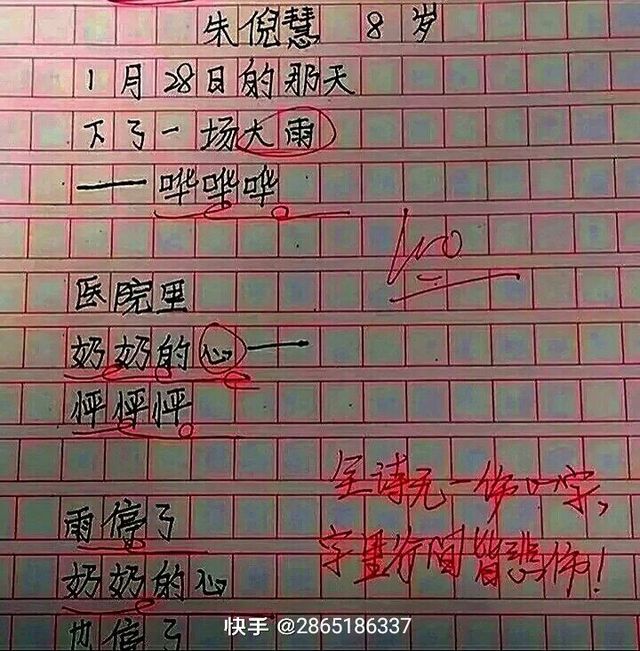 朱倪慧 8岁
1月28日的那天
下了一场大雨
——哗哗哗
100
医院里
奶奶的心——
怦怦怦
全诗无一伤心字,
字里行间皆悲伤!
雨停了
奶奶的心
也停了
快手 @2865186337